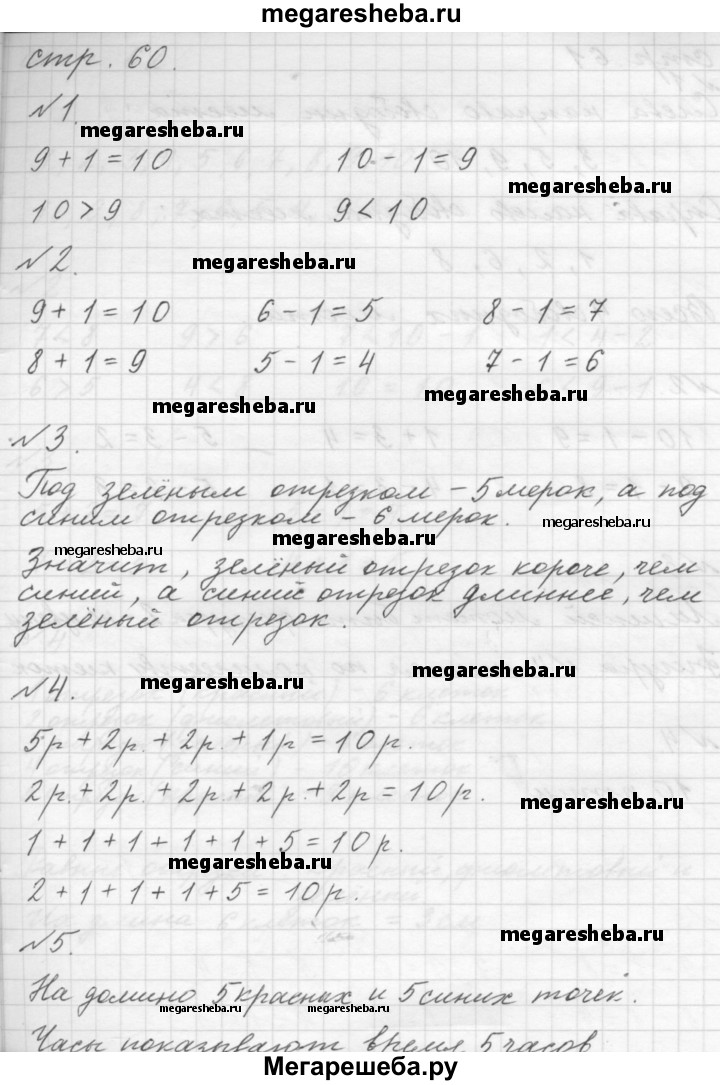 megaresheba.ru
стр. 60.
№1.
megaresheba.ru
9 + 1 = 10 10 - 1 = 9
megaresheba.ru
10 > 9 9 < 10
№2. megaresheba.ru
9 + 1 = 10 6 - 1 = 5 8 - 1 = 7
8 + 1 = 9 5 - 1 = 4 7 - 1 = 6
megaresheba.ru
megaresheba.ru
№3.
Под зелёным отрезком - 5 мерок, а под
синим отрезком - 6 мерок. megaresheba.ru
megaresheba.ru
megaresheba.ru
Значит, зелёный отрезок короче, чем
синий, а синий отрезок длиннее, чем
зелёный отрезок.
megaresheba.ru
№4. megaresheba.ru
5р + 2р. + 2р. + 1р = 10р.
2р. + 2р. + 2р + 2р. + 2р = 10р. megaresheba.ru
1 + 1 + 1 + 1 + 1 + 5 = 10р.
megaresheba.ru
2 + 1 + 1 + 1 + 5 = 10р.
№5. megaresheba.ru
На домино 5 красных и 5 синих точек.
megaresheba.ru megaresheba.ru
Часы показывают время 5 часов
Мегарешеба.ру